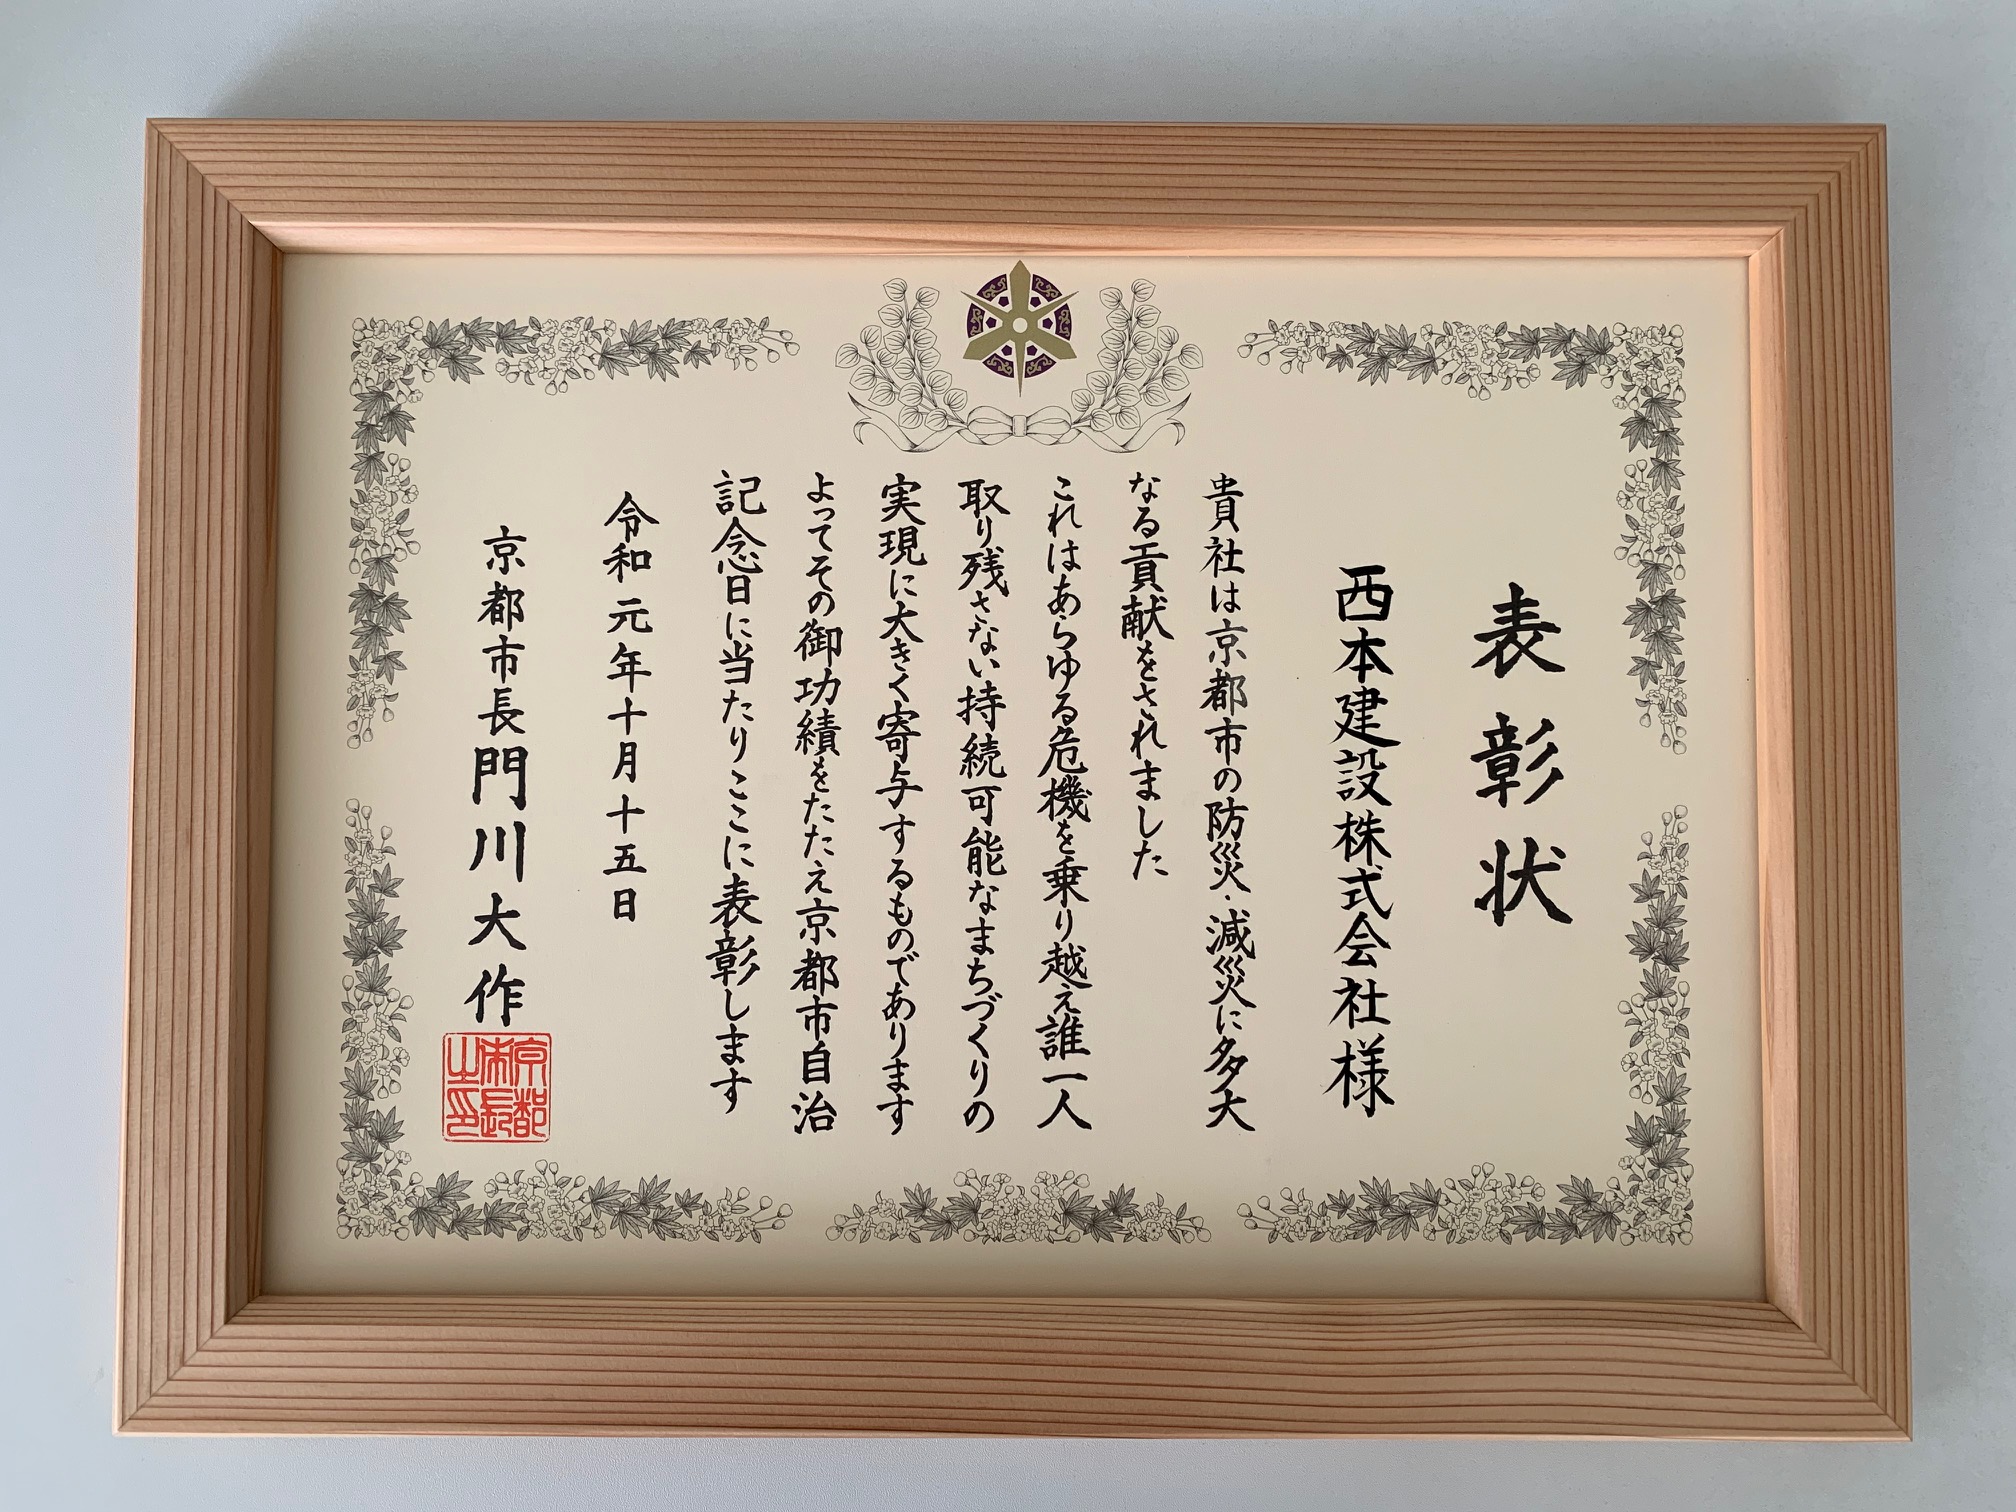 表彰状
西本建設株式会社様
貴社は京都市の防災・減災に多大
なる貢献をされました
これはあらゆる危機を乗り越え誰一人
取り残さない持続可能なまちづくりの
実現に大きく寄与するものであります
よってその御功績をたたえ京都市自治
記念日に当たりここに表彰します
令和元年十月十五日
京都市長門川大作
京都
市長
之印